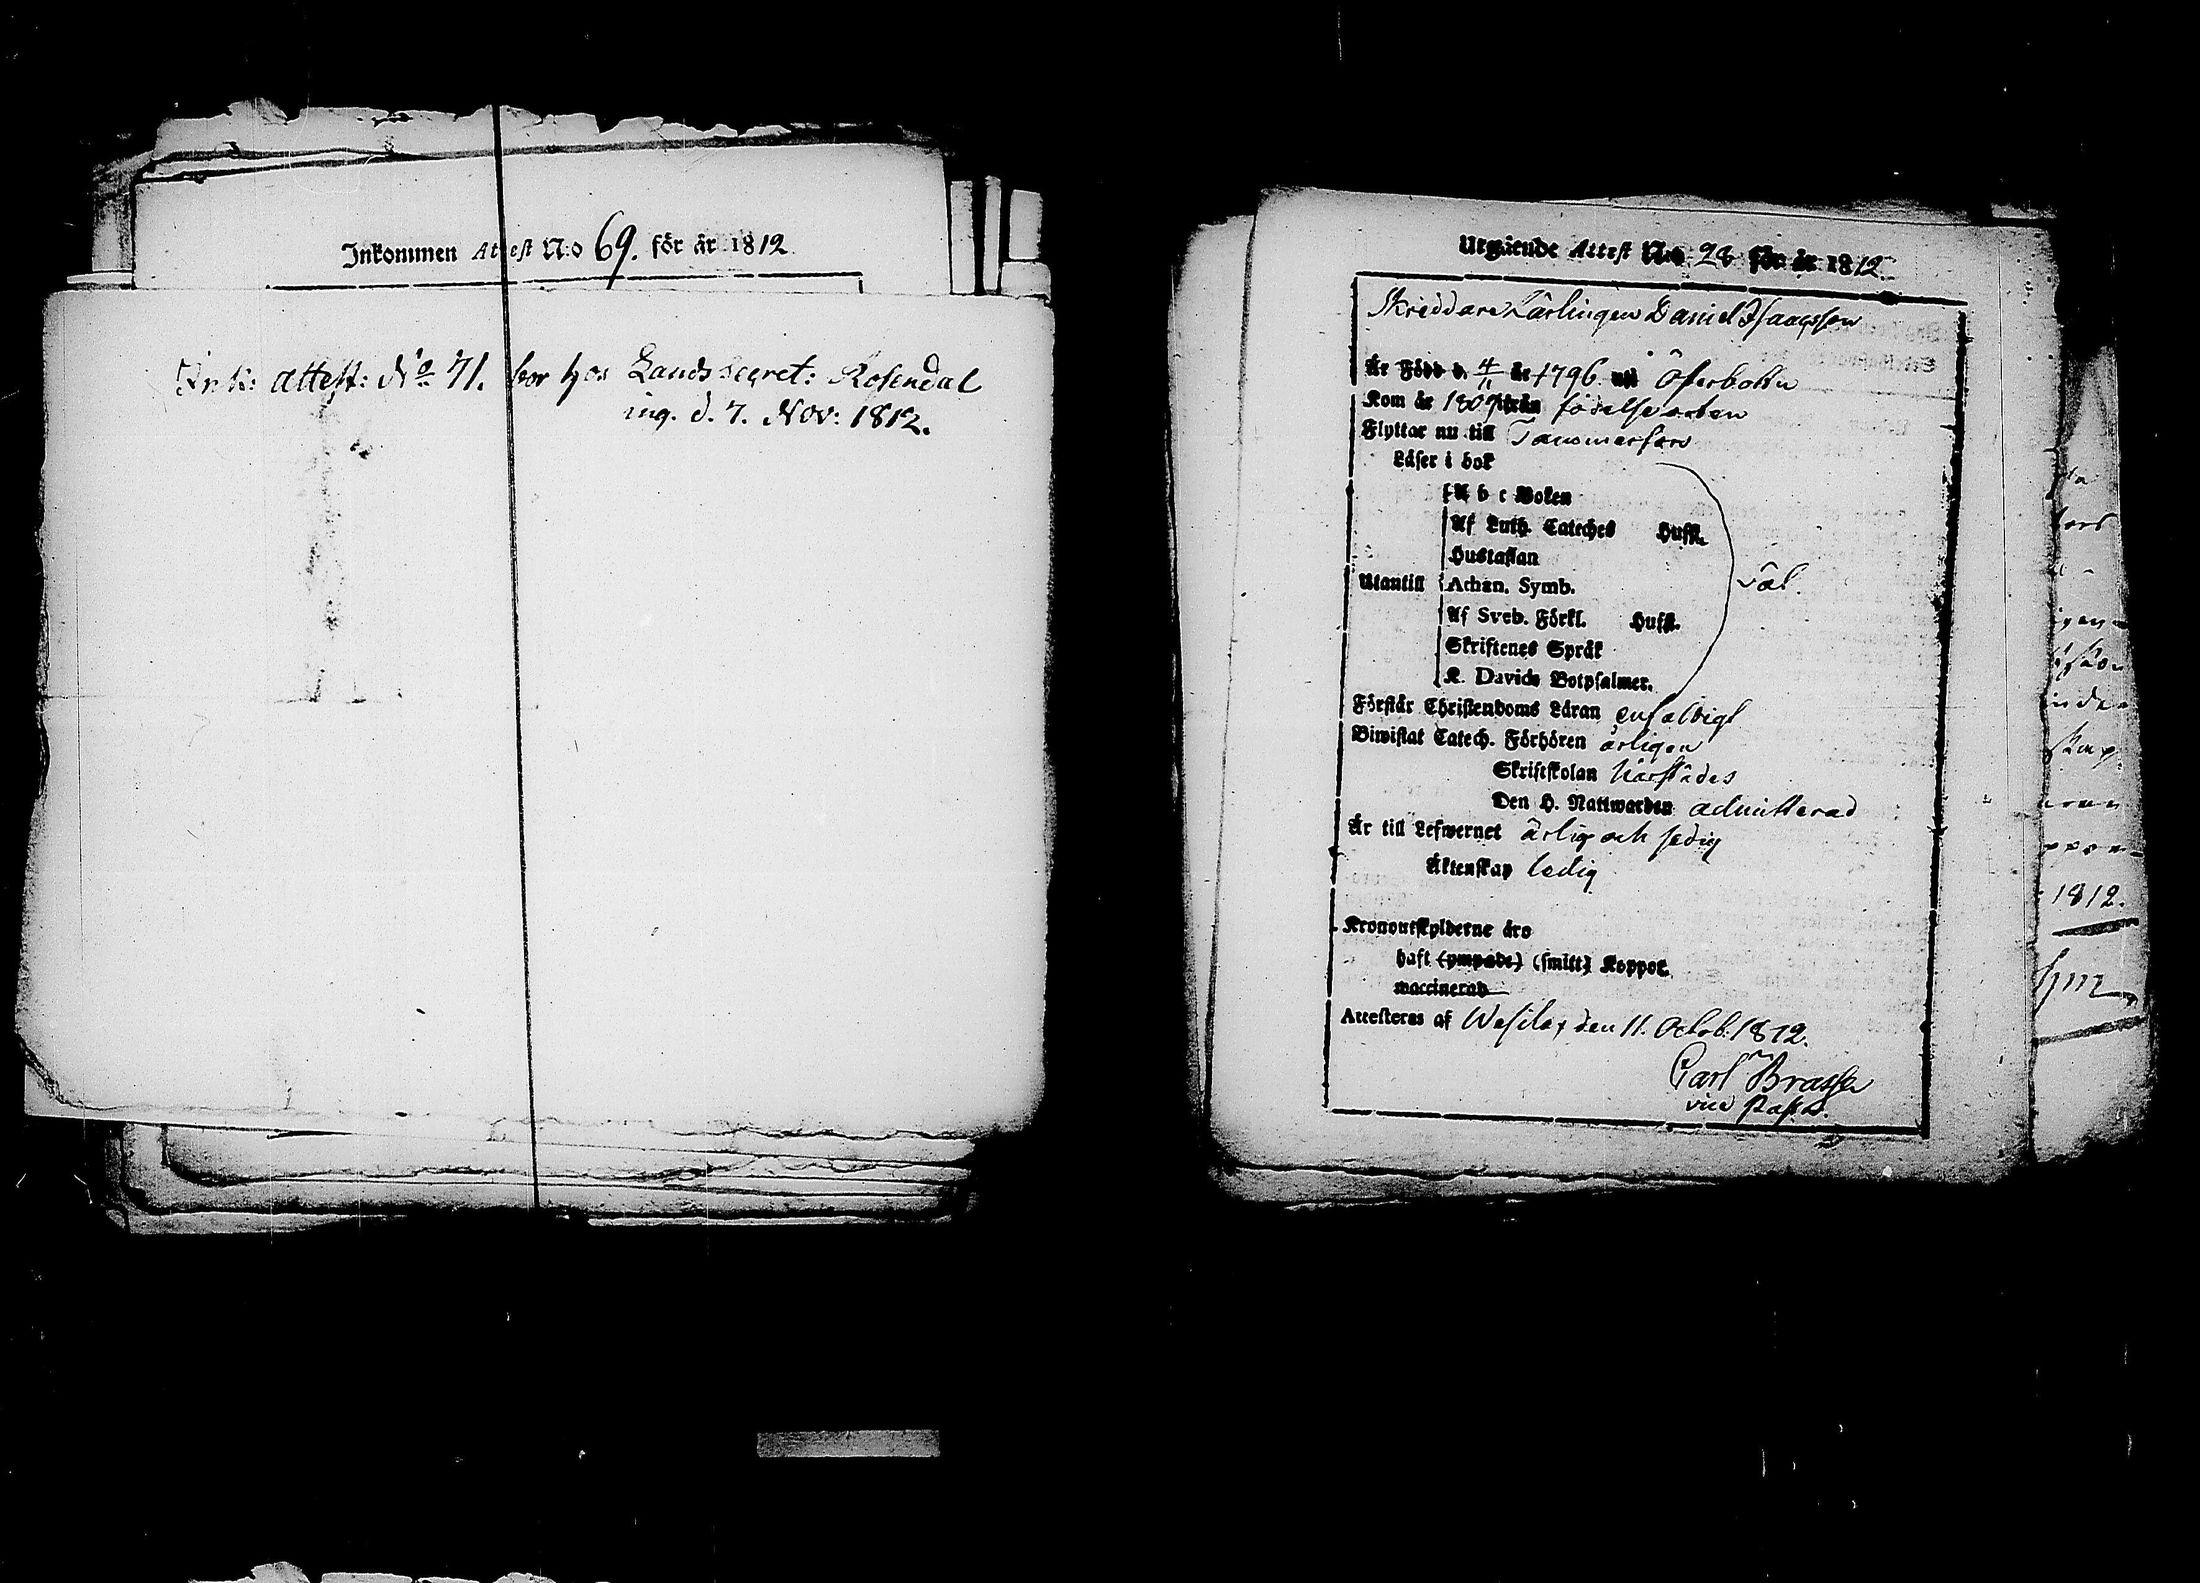 Inkommen Attest N:o 69. för år 1812
Ink: attest: No 71. bor hos Landssecret: Rosendal
ing. d. 7. Nov: 1812.
Utgående Attest N:o 28 för år 1812.
Skriddare Lärlingen Daniel Isaacsson
Är Född d. 4/11 år 1796. uti Österbotten
Kom år 1809 ifrån födelseorten
Flyttar nu till Tammerfors
Läser i bok
A b c Boken
Af Luth. Cateches Hufst.
Hustaflan
Utantill Athan. Symb. väl.
Af Sveb. Förkl. Hufst.
Skriftenes Språk
K. Davids Botpsalmer.
Förstår Christendoms Läran enfaldigt
Biwistat Catech. Förhören årligen
Skriftskolan härstädes
Den H. Nattwarden admitterad
Är till Lefwernet ärlig och sedig
Äktenskap ledig
Kronoutskylderne äro
haft (ympade) (smitt) Koppor
waccinerad
Attesteras af Wesilax den 11. Octob. 1812.
Carl
vice Past.
1812.